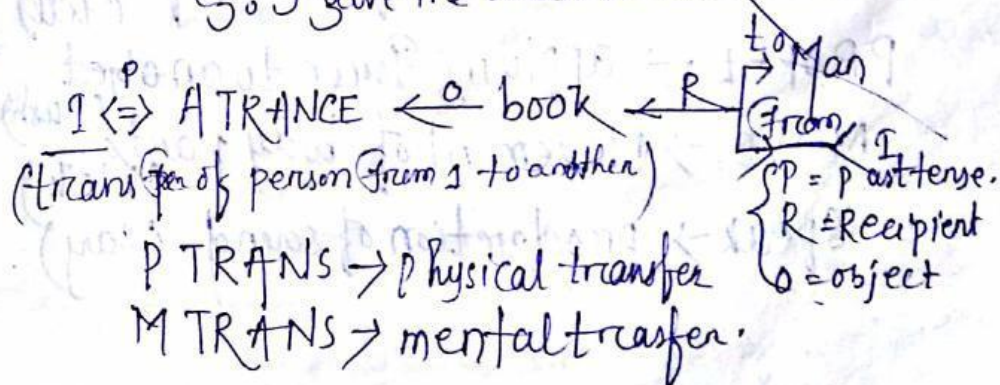 I <=> ATRANCE <-O- book <-R- to Man
From I
(transfer of person From 1 to another)
P = Past tense.
R = Recipient
O = object
P TRANS → physical transfer
M TRANS → mental trasfer.